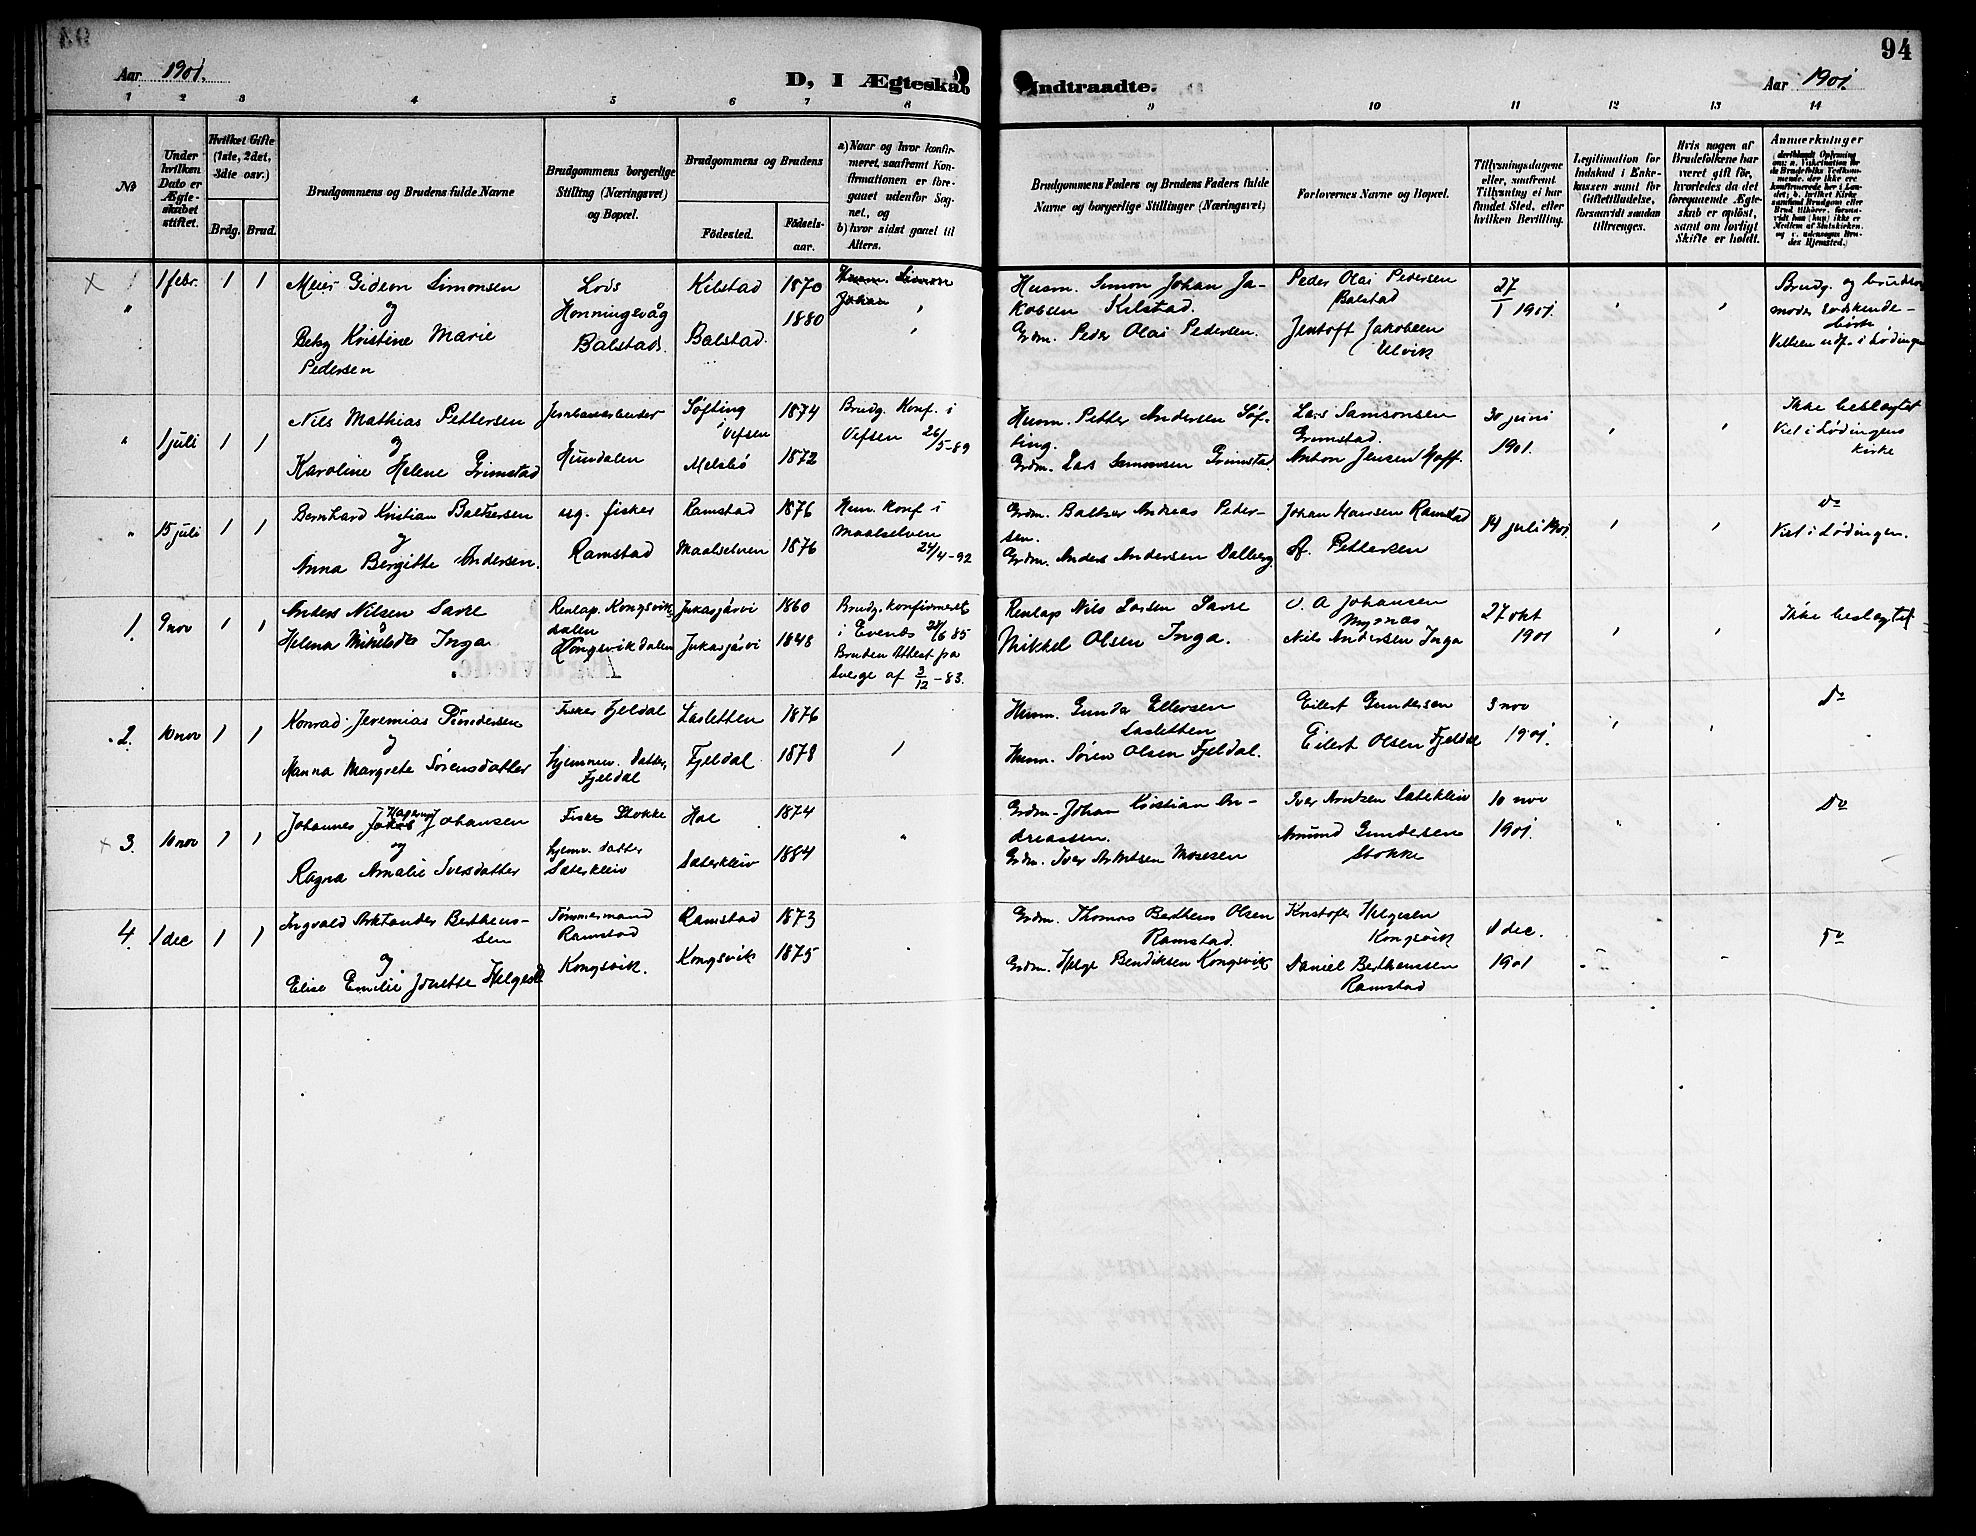 94
Aar 1901.
D, I Ægteskab
Indtraadte.
Aar 1901.
1 2 3 4 5 6 7 8 9 10 11 12 13 14
No
Under
hvilken
Dato er
Ægte-
skabet
stiftet.
Hvilket Gifte
(1ste, 2det,
3die osv.)
Brdg. Brud.
Brudgommens og Brudens fulde Navne
Brudgommens borgerlige
Stilling (Næringsvei)
og Bopæl.
Brudgommens og Brudens
Födested.
Födsels-
aar.
a) Naar og hvor konfir-
meret, saafremt Kon-
firmationen er fore-
gaaet udenfor Sog-
net, og
b) hvor sidst gaaet til
Alters.
Brudgommens Faders og Brudens Faders fulde
Navne og borgerlige Stillinger (Næringsvei)
Forlovernes Navne og Bopæl.
Tillysningsdagene
eller, saafremt
Tillysning ei har
fundet Sted, efter
hvilken Bevilling.
Legitimation for
Indskud i Enke-
kassen samt for
Giftetilladelse,
forsaavidt saadan
tiltrænges.
Hvis nogen af
Brudefolkene har
været gift før,
hvorledes da det
foregaaende Ægte-
skab er oplöst,
samt om lovligt
Skifte er holdt.
Anmerkninger
1 1 febr. 1 1
Meier Gideon Simonsen
og
Betzy Kristine Marie
Pedersen
Lods
Honningsvåg
Balstad.
Kilstad 1870
Balstad. 1880
Husm. Simon
Johan
Husm. Simon Johan Ja-
kobsen Kilstad.
Grdm. Peder Olai Pedersen.
Peder Olai Pedersen
Balstad
Jentoft Jakobsen
Ulvik
27
1 1901.
Brudg. og brudens
moder södskende-
börn
Vielsen udf. i Lödingen
" 1 juli 1 1
Nils Mathias Pettersen
og
Karoline Helene Grimstad
Jernbanearbeider
Hundalen
Söfting
i Vefsen 1874
Melsbö 1872
Brudg. Konf. i
Vefsen 26/5-89
Husm. Petter Andersen Söf-
ting.
Grdm. Lars Samonsen Grimstad
Lars Samsonsen
Grimstad.
Anton Jensen Hoff.
30 juni
1901.
Ikke beslagtet
Viet i Lödingens
Kirke
" 15 juli 1 1
Bernhard Kristian Baltsersen
og
Anna Bergitte Andersen.
ug. fisker
Ramstad
Ramstad 1876
Maalselven 1876
Hun. Konf i
Maalselven
24/4-92
Grdm. Baltzer Andreas Peder-
sen.
Grdm. Anders Andersen Dalberg
Johan Hansen Ramstad
A. Pettersen
14 juli 1901.
Do
Viet i Lödingen.
1. 9 nov 1 1
Anders Nilsen Sarre
Helena Mikelsdtr Inga
Renlap. Kongsvik-
dalen
Kongsvikdalen
Jukasjärvi 1860
Jukasjärvi 1848
Brudg. konfirmeret
i Evenes 24/6 85
Bruden Attest fra
Sverge af 3/12 - 83.
Renlap Nils Larsen Sarre
Mikkel Olsen Inga.
O. A Johansen
Myrnes
Nils Andersen Inga
27 okt
1901
Ikke beslagtet
2. 10 nov 1 1
Konrad Jeremias Gundersen
og
Hanna Margrete Sörensdatter
Fisker Fjeldal
hjemmev. datter,
Fjeldal
Lasletten 1876
Fjeldal 1878
Husm. Gunder Ellersen
Lasletten
Husm. Sören Olsen Fjeldal.
Eilert Gundersen
Eilert Olsen Fjeldal
3 nov
1901.
Do
3. 10 nov 1 1
Johannes Jakob Johansen
og
Ragna Amalie Iversdatter
Fisker Stokke
hjemv. datter
Sæterkleiv
Hol 1874
Sæterkleiv 1884
Grdm. Johan Kristian An-
dreassen.
Grdm. Iver Arntsen Mosesen
Iver Arntzen Sæterkleiv
Amund Gundersen
Stokke
10 nov
1901.
Do
4. 1 dec 1 1
Ingvald Arktander Bertheus-
sen
og
Elise Emilie Jonette Helgesd
Tömmermand
Ramstad
Kongsvik.
Ramstad 1873
Kongsvik 1875
Grdm. Thomas Bertheus Olsen
Ramstad.
Grdm. Helge Bendiksen Kongsvik
Kristofer Helgesen
Kongsvik
Daniel Bertheussen
Ramstad
1 dec.
1901
Do